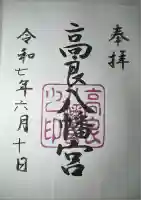 奉拝
高良八幡宮
高良
之印
令和七年六月十日